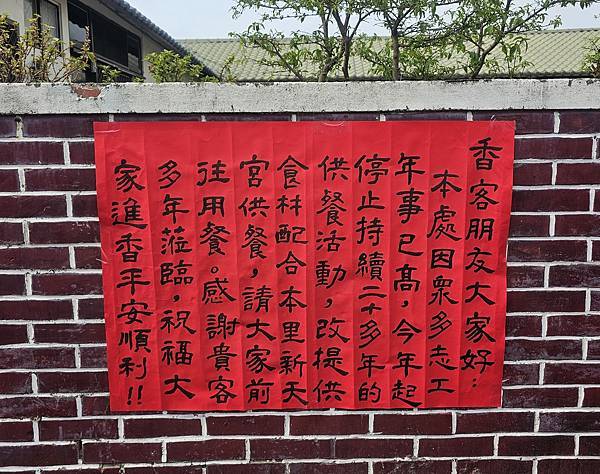 香客朋友大家好：
本處因眾多志工
年事已高，今年起
停止持續二十多年的
供餐活動，改提供
食材配合本里新天
宮供餐，請大家前
往用餐。感謝貴客
多年蒞臨，祝福大
家進香平安順利！！